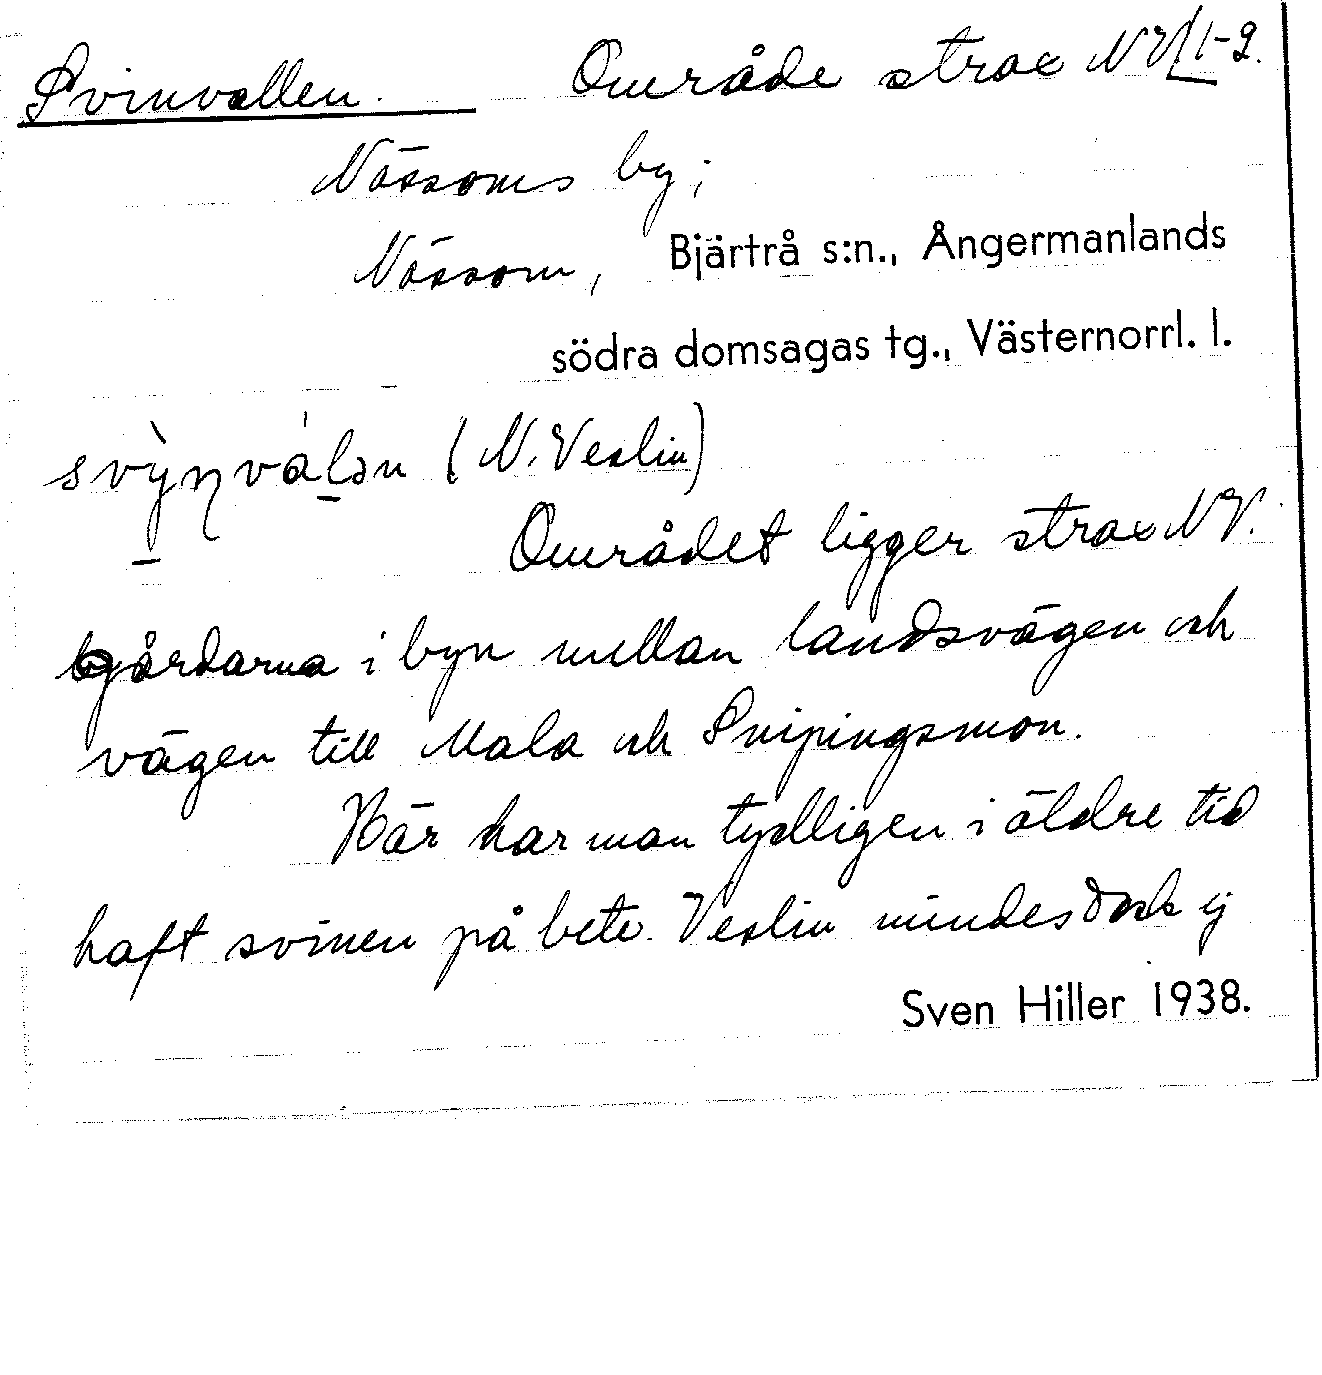 Svinvallen. Område strax NV 1-2.
Nässoms by;
Nässom, Bjärtrå s:n., Ångermanlands
södra domsagas tg., Västernorrl. l.
(N. Veslin)
Området ligger strax NV.
gårdarna i byn mellan landsvägen och
vägen till Mala och Snipingsmon.
Här har man tydligen i äldre tid
haft svinen på bete. Veslin mindes dock ej
Sven Hiller 1938.